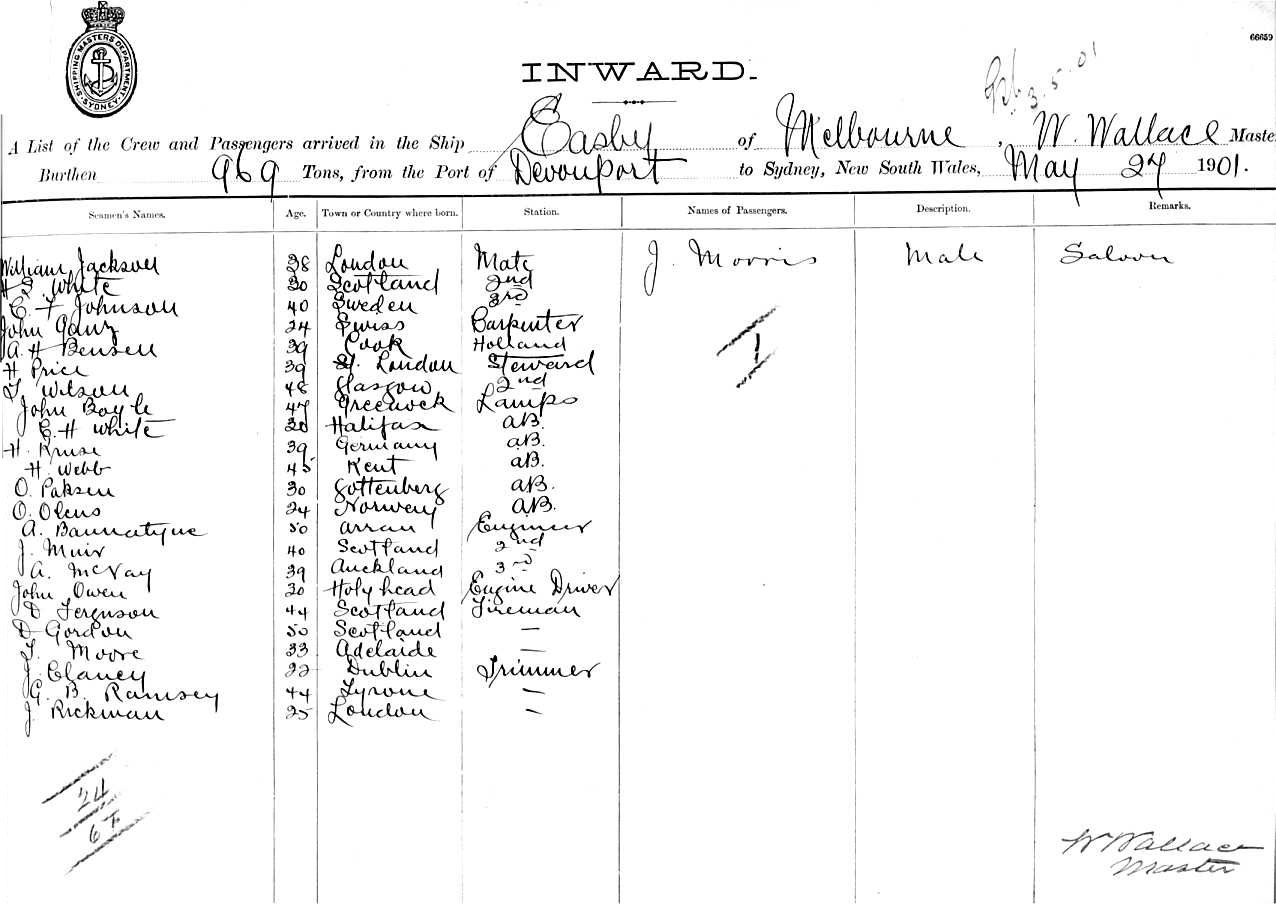 SHIPPING MASTERS DEPARTMENT SYDNEY
66659
INWARD.
3.5.01
A List of the Crew and Passengers arrived in the Ship Easby of Melbourne, W. Wallace Maste
Burthen 969 Tons, from the Port of Devonport to Sydney, New South Wales, May 27 1901.
Seamen's Names. Age. Town or Country where born. Station. Names of Passengers. Description. Remarks.
William Jackson 38 London Mate J. Morris Male Saloon
H S. White 30 Scotland 2nd
C. F Johnson 40 Sweden 3rd
John Ganz 24 Swiss Carpenter
A. H Bensen 39 Cook Holland
H Price 39 London Steward
T Wilson 48 Glasgow 2nd
John Boyle 47 Greenock Lamps
E. H White 30 Halifax AB.
H. Kruse 39 Germany AB.
H. Webb 45 Kent AB.
O. Paksen 30 Gottenberg AB.
O. Olens 24 Norway AB.
A. Bannatyne 50 Arran Engineer
J. Muir 40 Scotland 2nd
A. McVay 39 Auckland 3rd
John Owen 30 Holyhead Engine Driver
D Ferguson 44 Scotland Fireman
D Gordon 50 Scotland —
T. Moore 33 Adelaide —
J. Clancy 22 Dublin Trimmer
G. B. Ramsey 44 Tyrone —
J. Rickman 25 London —
1
24
W Wallace
Master